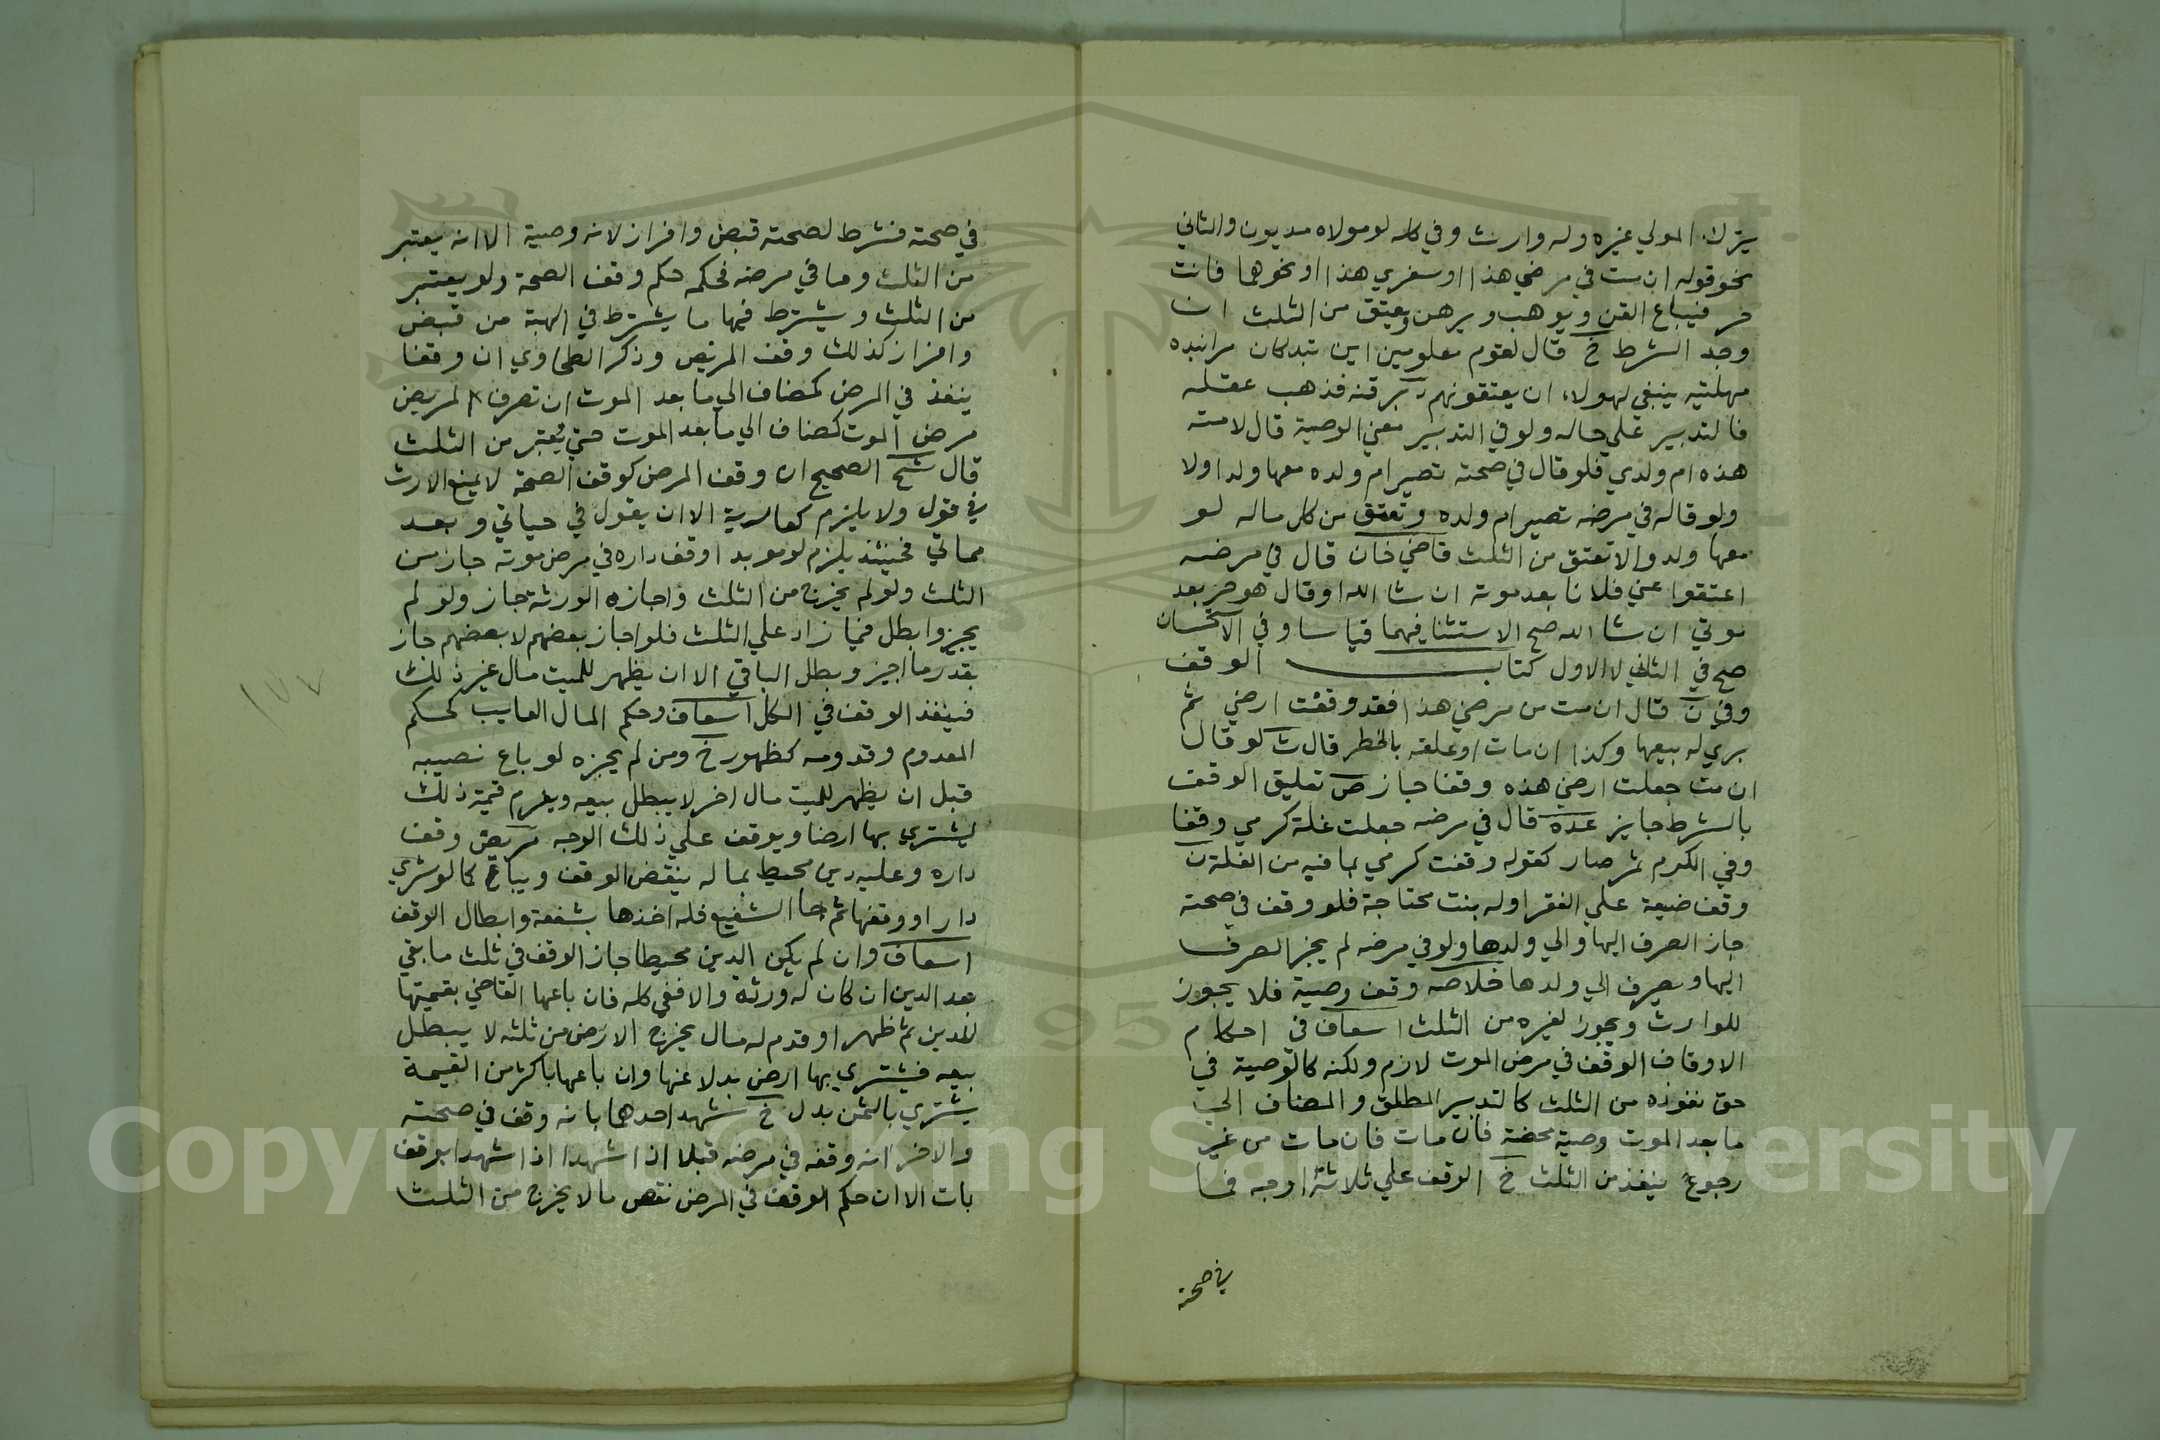 يترك المولي غيره وله وارث وفي كله لو مولاه مديون والثاني
نحو قوله ان مت في مرضي هذا او سفري هذا او نحوهما فانت
حر فيباع القن ويوهب ويرهن ويعتق من الثلث ان
وجد الشرط خ قال لقوم معلومين
ينبغي لهولاء ان يعتقونهم دبر قنه فذهب عقله
فالتدبير علي حاله ولو في التدبير معني الوصية قال لامته
هذه ام ولدي فلو قال في صحته تصير ام ولده معها ولد اولا
ولو قاله في مرضه تصير ام ولده وتعتق من كل ماله لو
معها ولد والا تعتق من الثلث قاضي خان قال في مرضه
اعتقوا عني فلانا بعد موته ان شا الله او قال هو حر بعد
موتي ان شا الله صح الاستثنا فيهما قياسا وفي الاستحسان
صح في الثاني لا الاول كتاب الوقف
وفي ن قال ان مت من مرضي هذا فقد وقفت ارضي ثم
بري له بيعها وكذا ان مات او علقه بالخطر قال ث لو قال
ان مت جعلت ارضي هذه وقفا جاز ص تعليق الوقف
بالشرط جايز عده قال في مرضه جعلت غلة كرمي وقفا
وفي الكرم ثمر صار كقوله وقفت كرمي بما فيه من الغلة ن
وقف ضيعة علي الفقرا وله بنت محتاجة فلو وقف في صحته
جاز الصرف اليها والي ولدها ولو في مرضه لم يجز الصرف
اليها ويصرف الي ولدها خلاصه وقف وصية فلا يجوز
للوارث ويجوز لغيره من الثلث اسعاف في احكام
الاوقاف الوقف في مرض الموت لازم ولكنه كالوصية في
حق نفوذه من الثلث كالتدبير المطلق والمضاف الي
ما بعد الموت وصية محضة فان مات فان مات من غير
رجوع ينفذ من الثلث خ الوقف علي ثلاثة اوجه فما
في صحته
في صحته فشرط لصحته قبض وافراز لانه وصية الا انه يعتبر
من الثلث وما في مرضه فحكمه حكم وقف الصحة ولو يعتبر
من الثلث ويشترط فيها ما يشترط في الهبة من قبض
وافراز كذلك وقف المريض وذكر الطحاوي ان وقفا
ينفذ في المرض كمضاف الي ما بعد الموت ان تصرف المريض
مرض الموت كمضاف الي ما بعد الموت حتي يعتبر من الثلث
قال شخ الصحيح ان وقف المرض كوقف الصحة لا يمنع الارث
في قول ولا يلزم كعارية الا ان يقول في حياتي وبعد
مماتي فحينئذ يلزم لو موبدا وقف داره في مرض موته جاز من
الثلث ولو لم يخرج من الثلث واجازه الورثة جاز ولو لم
يجيزوا بطل فيما زاد علي الثلث فلو اجاز بعضهم لا بعضهم جاز
بقدر ما اجيز وبطل الباقي الا ان يظهر للميت مال غير ذلك
فينفذ الوقف في الكل اسعاف وحكم المال الغايب كحكم
المعدوم وقدومه كظهوره خ ومن لم يجزه لو باع نصيبه
قبل ان يظهر للميت مال اخر لا يبطل بيعه ويغرم قيمة ذلك
ليشتري بها ارضا ويوقف علي ذلك الوجه مريض وقف
داره وعليه دين محيط بماله ينقض الوقف ويباع كما لو شري
دارا ووقفها ثم جا الشفيع فله اخذها بشفعة وابطال الوقف
اسعاف وان لم يكن الدين محيطا جاز الوقف في ثلث ما بقي
بعد الدين ان كان له ورثة والا ففي كله فان باعها القاضي بقيمتها
للدين ثم ظهر او قدم له مال يخرج الارض من ثلثه لا يبطل
بيعه فيشتري بها ارض بدلا عنها وان باعها باكثر من القيمة
يشتري بالثمن بدل خ شهد احدهما بانه وقف في صحته
والاخر انه وقفه في مرضه قبلا اذا شهدا اذا شهدا بوقف
بات الا ان حكم الوقف في المرض نقص ما لا يخرج من الثلث
١٧٧
Copyright © King Saud University
1957